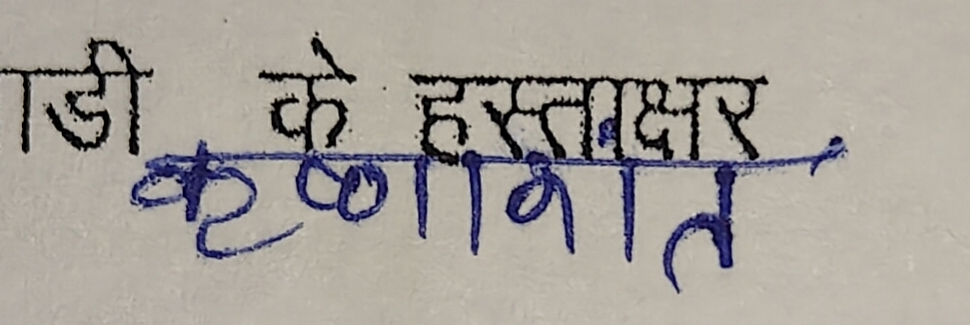 ाडी के हस्ताक्षर
कृष्णाकांत